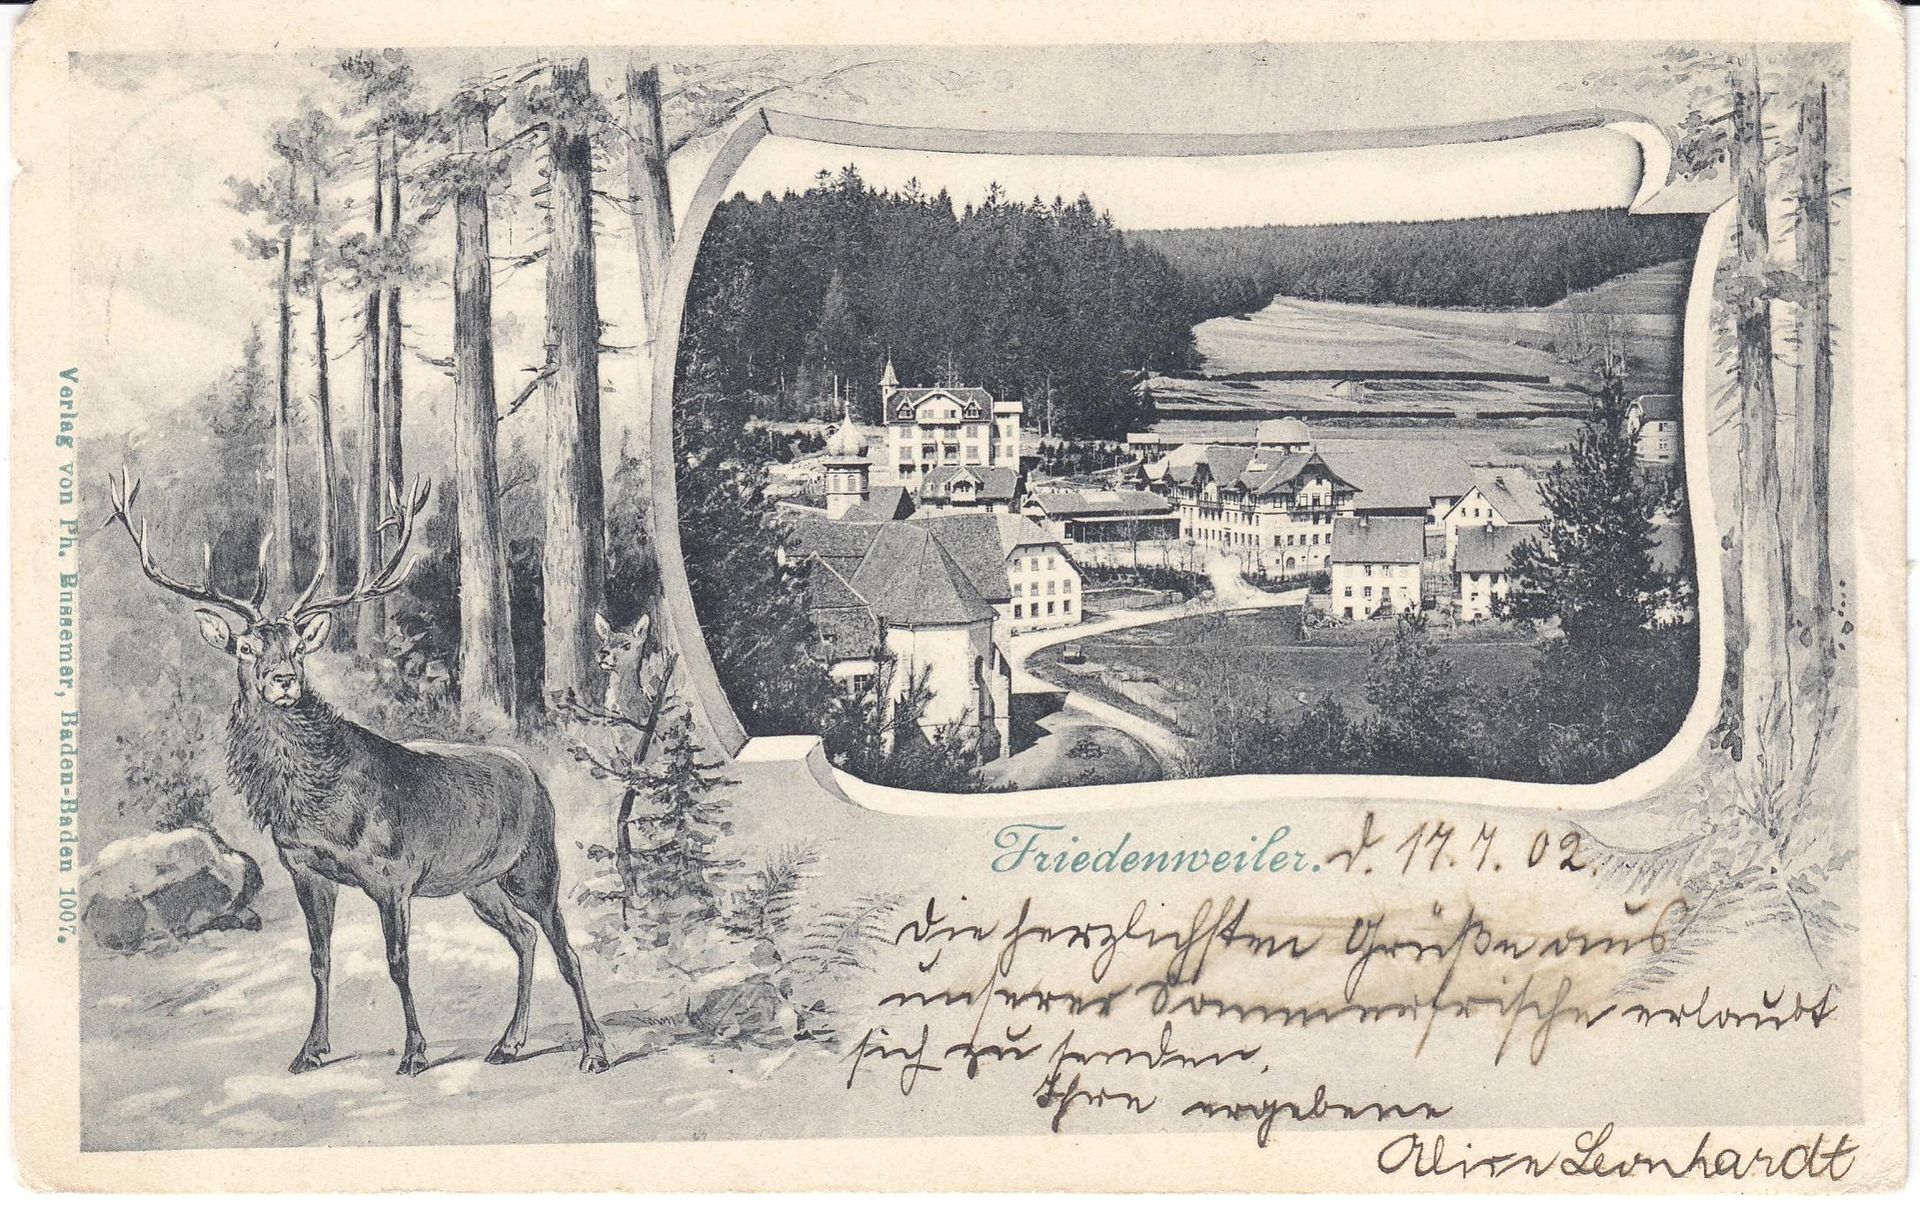 Verlag von Ph. Bussemer, Baden=Baden 1007.
Friedenweiler. d. 17.7.02.
Die herzlichsten Grüße aus
unserer Sommerfrische erlaubt
sich zu senden.
Ihre ergebene
Alice Leonhardt